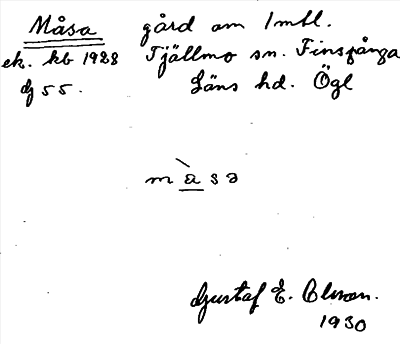 Måsa gård om 1 mtl.
ek. kb 1928 Tjällmo sn. Finspånga
dj 55. Läns hd. Ögl
m a s ə
Gustaf E. Olsson.
1930